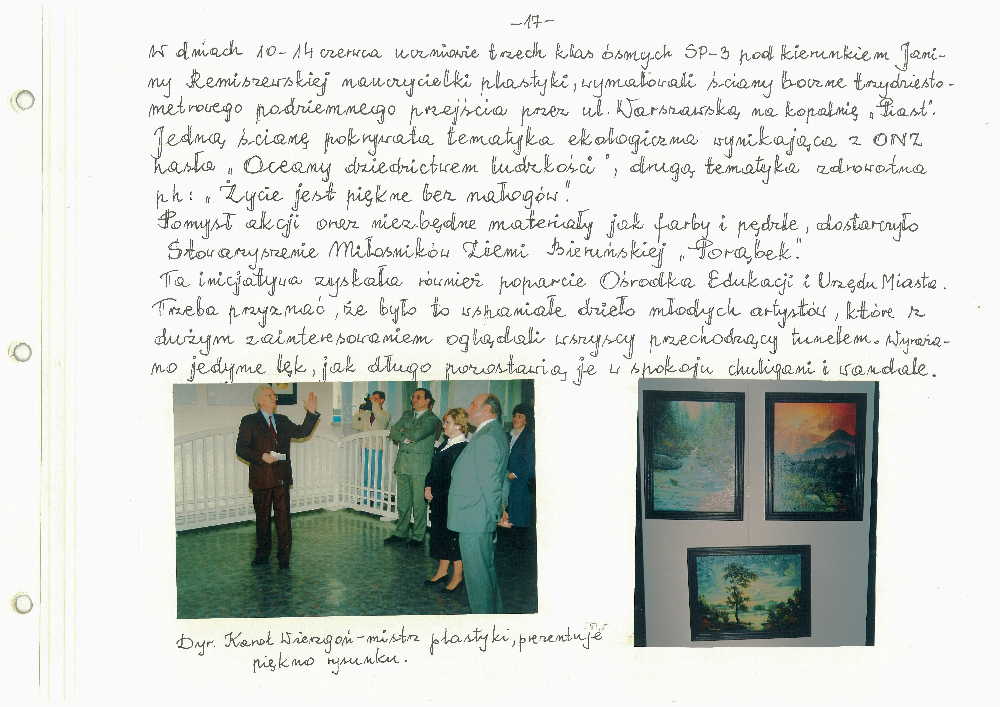 -17-
W dniach 10-14 czerwca uczniowie trzech klas ósmych SP-3 pod kierunkiem Jani-
ny Remiszewskiej nauczycielki plastyki, wymalowali ściany boczne trzydziesto-
metrowego podziemnego przejścia przez ul. Warszawską na kopalnię „Piast".
Jedną ścianę pokrywała tematyka ekologiczna wynikająca z ONZ
hasła „Oceany dziedzictwem ludzkości", drugą tematyka zdrowotna
ph: „Życie jest piękne bez nałogów".
Pomysł akcji oraz niezbędne materiały jak farby i pędzle, dostarczyło
Stowarzyszenie Miłośników Ziemi Bieruńskiej „Porąbek".
Ta inicjatywa zyskała również poparcie Ośrodka Edukacji i Urzędu Miasta.
Trzeba przyznać, że było to wspaniałe dzieło młodych artystów, które z
dużym zainteresowaniem oglądali wszyscy przechodzący tunelem. Wyraża-
no jedynie lęk, jak długo pozostawią je w spokoju chuligani i wandale.
Dyr. Karol Wierzgoń-mistrz plastyki, prezentuje
piękno rysunku.